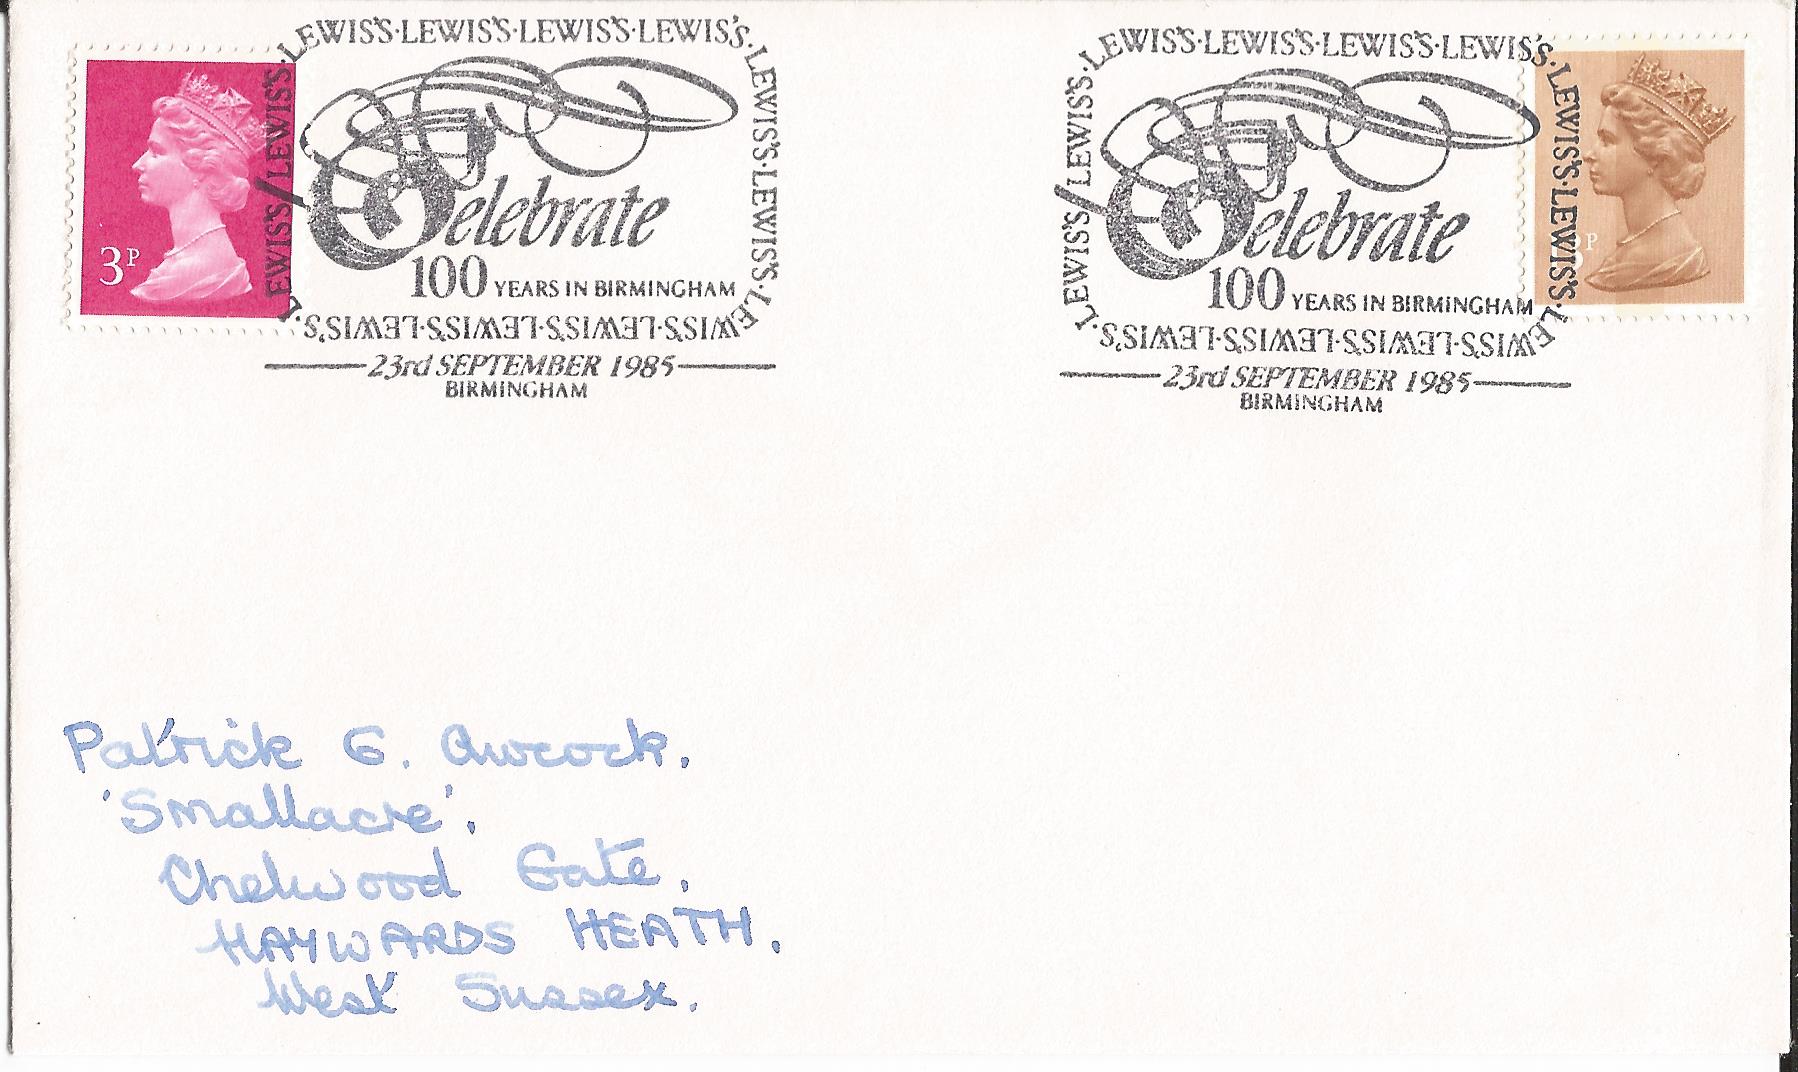 LEWIS'S·LEWIS'S·LEWIS'S·LEWIS'S·LEWIS'S·LEWIS'S·LEWIS'S·LEWIS'S·LEWIS'S·LEWIS'S·LEWIS'S·LEWIS'S
3P
Celebrate
100 YEARS IN BIRMINGHAM
23rd SEPTEMBER 1985
BIRMINGHAM
LEWIS'S·LEWIS'S·LEWIS'S·LEWIS'S·LEWIS'S·LEWIS'S·LEWIS'S·LEWIS'S·LEWIS'S·LEWIS'S·LEWIS'S·LEWIS'S
P
Celebrate
100 YEARS IN BIRMINGHAM
23rd SEPTEMBER 1985
BIRMINGHAM
Patrick G. Awcock.
'Smallacre'.
Chelwood Gate.
HAYWARDS HEATH.
West Sussex.